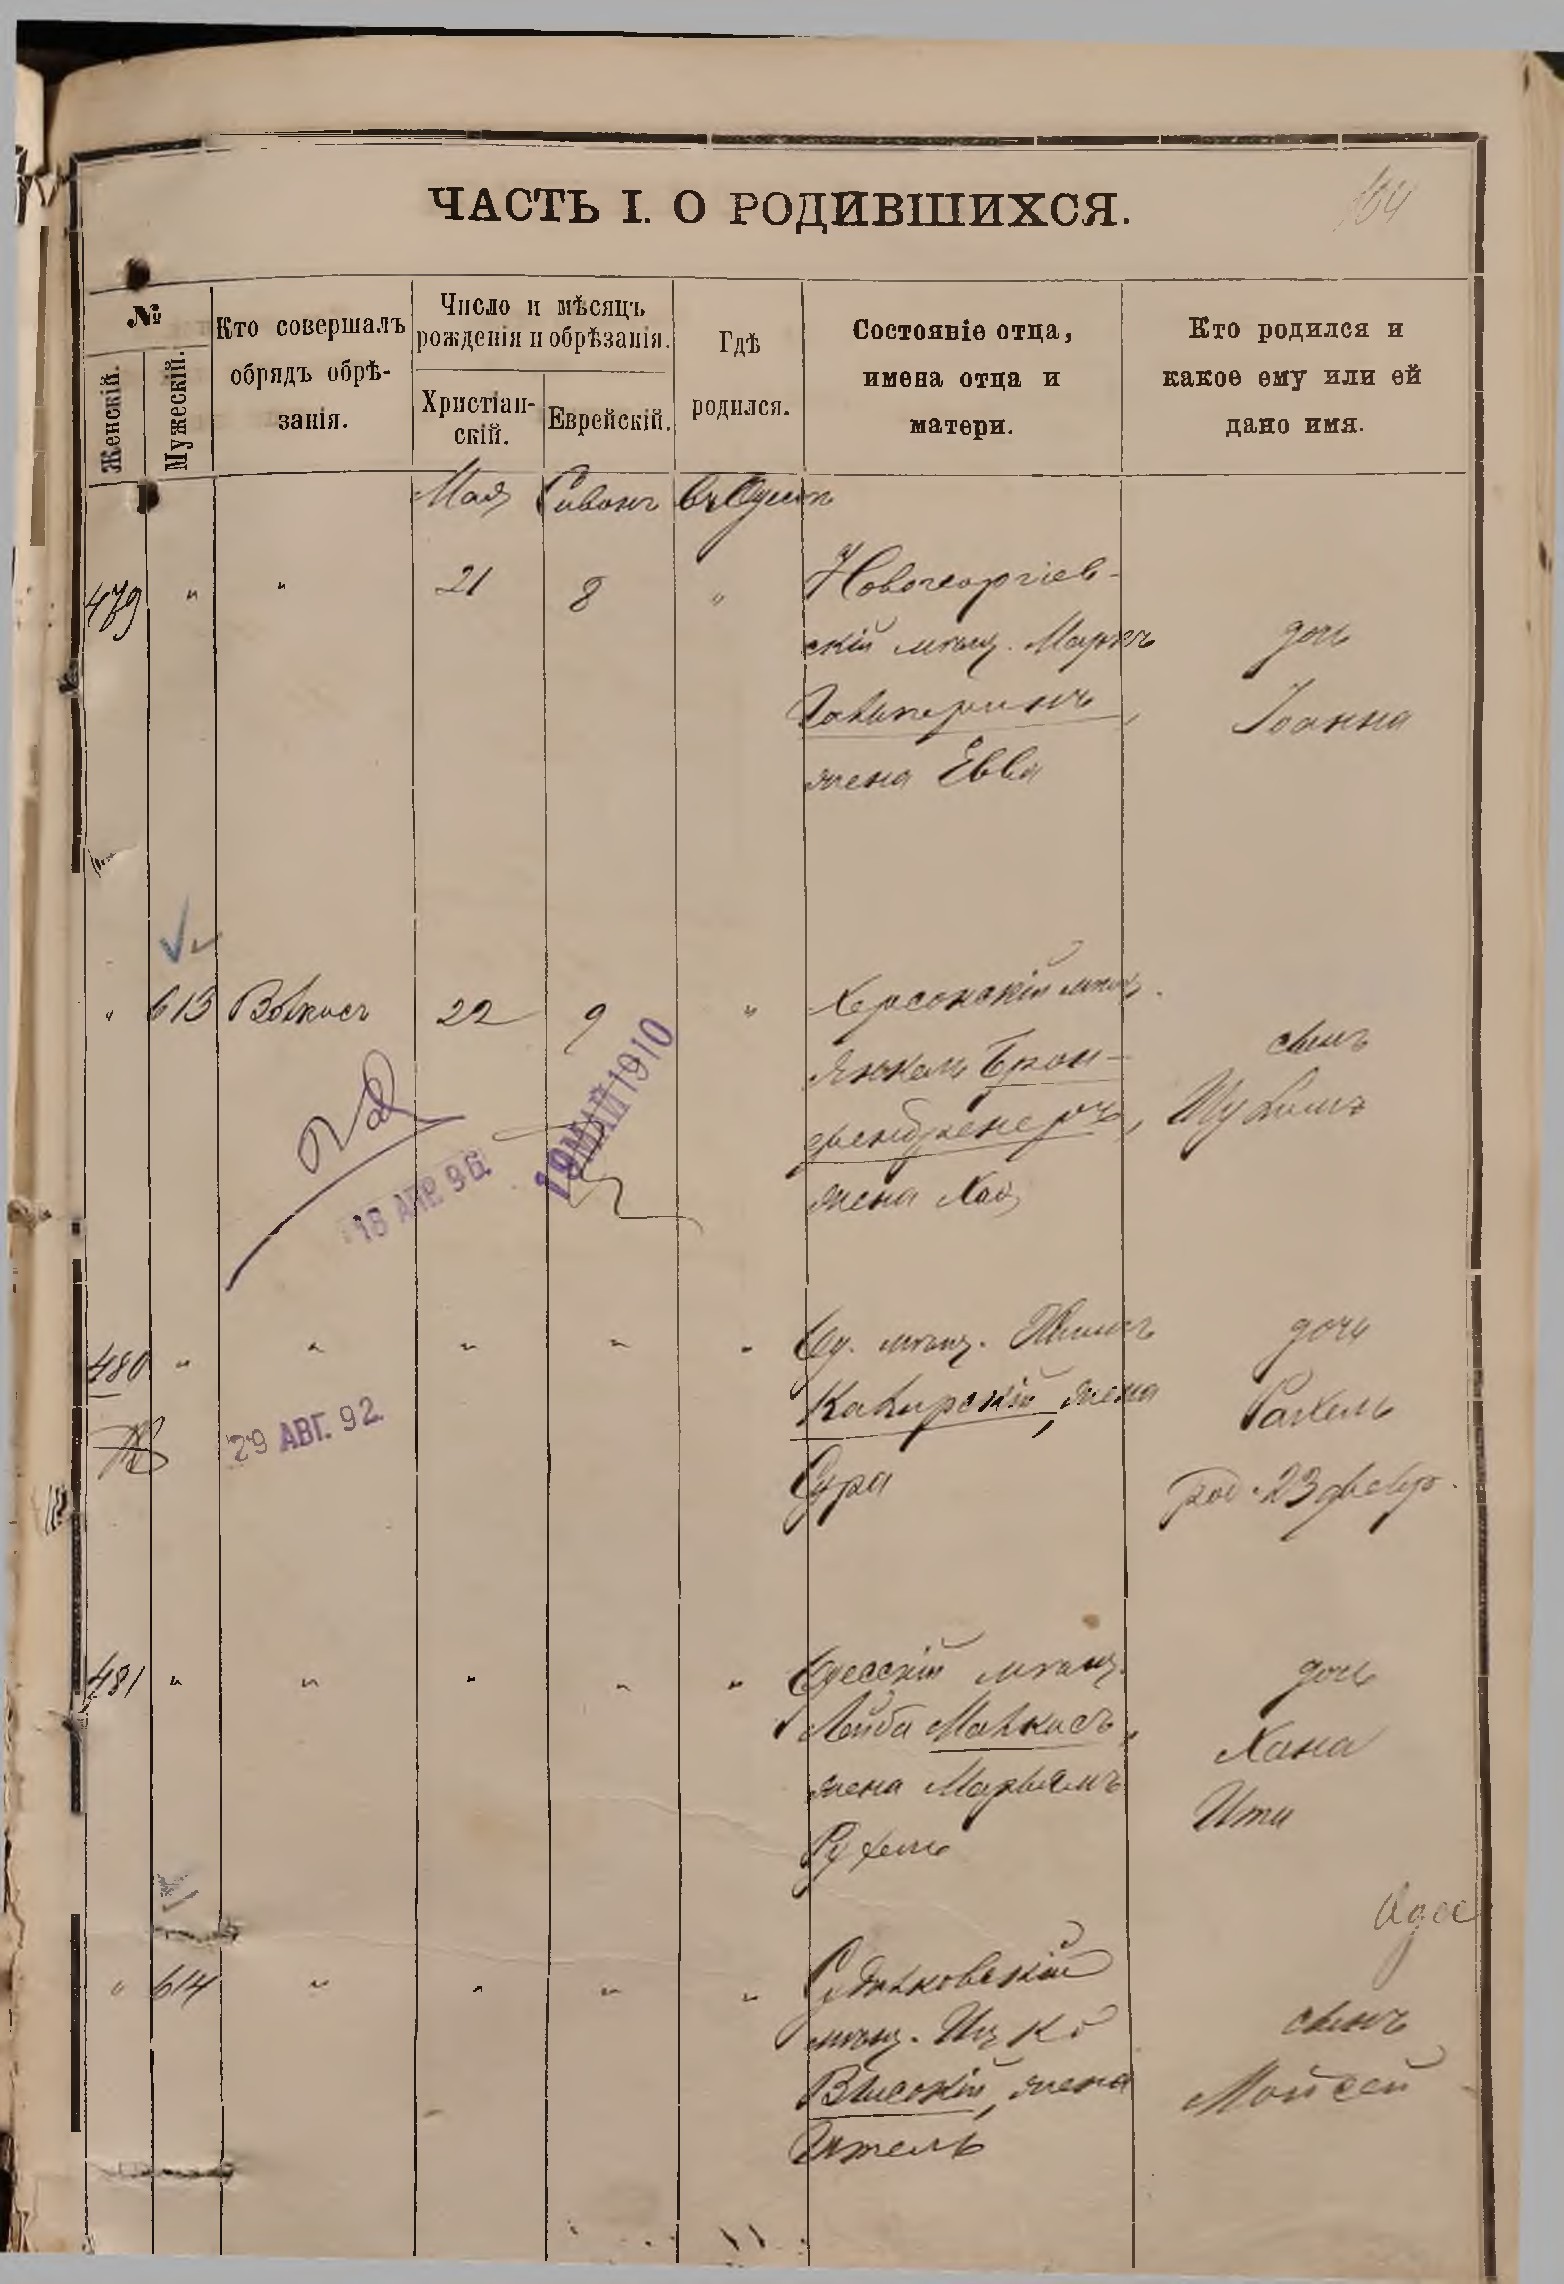 ЧАСТЬ I. О РОДИВШИХСЯ.
164
№
Женскій.
Мужескій.
Кто совершалъ
обрядъ обрѣ-
занія.
Число и мѣсяцъ
рожденія и обрѣзанія.
Христіан-
скій.
Еврейскій.
Гдѣ
родился.
Состояніе отца,
имена отца и
матери.
Кто родился и
какое ему или ей
дано имя.
Мая Сивонъ въ Одессѣ
479 " " 21 8 "
Новогеоргіев-
скій мѣщ. Маркъ
Гальперинъ,
жена Евва
дочь
Іоанна
" 613 Волкисъ 22 9 "
Херсонскій мѣщ.
Янкель Брон-
жена Хая
сынъ
Шулимъ
18 АПР. 96.
19 МАЙ 1910
480 " " " " "
Од. мѣщ.
Каћирскій, жена
Сура
дочь
Рахель
род. 23
29 АВГ. 92.
481 " " " " "
Одесскій мѣщ.
Лейба Малкисъ,
жена Марьямъ
Рухель
дочь
Хана
Ита
Одес
" 614 " " " "
Судилковскій
мѣщ. Ицко
Высокій, жена
Гитель
сынъ
Мойсей